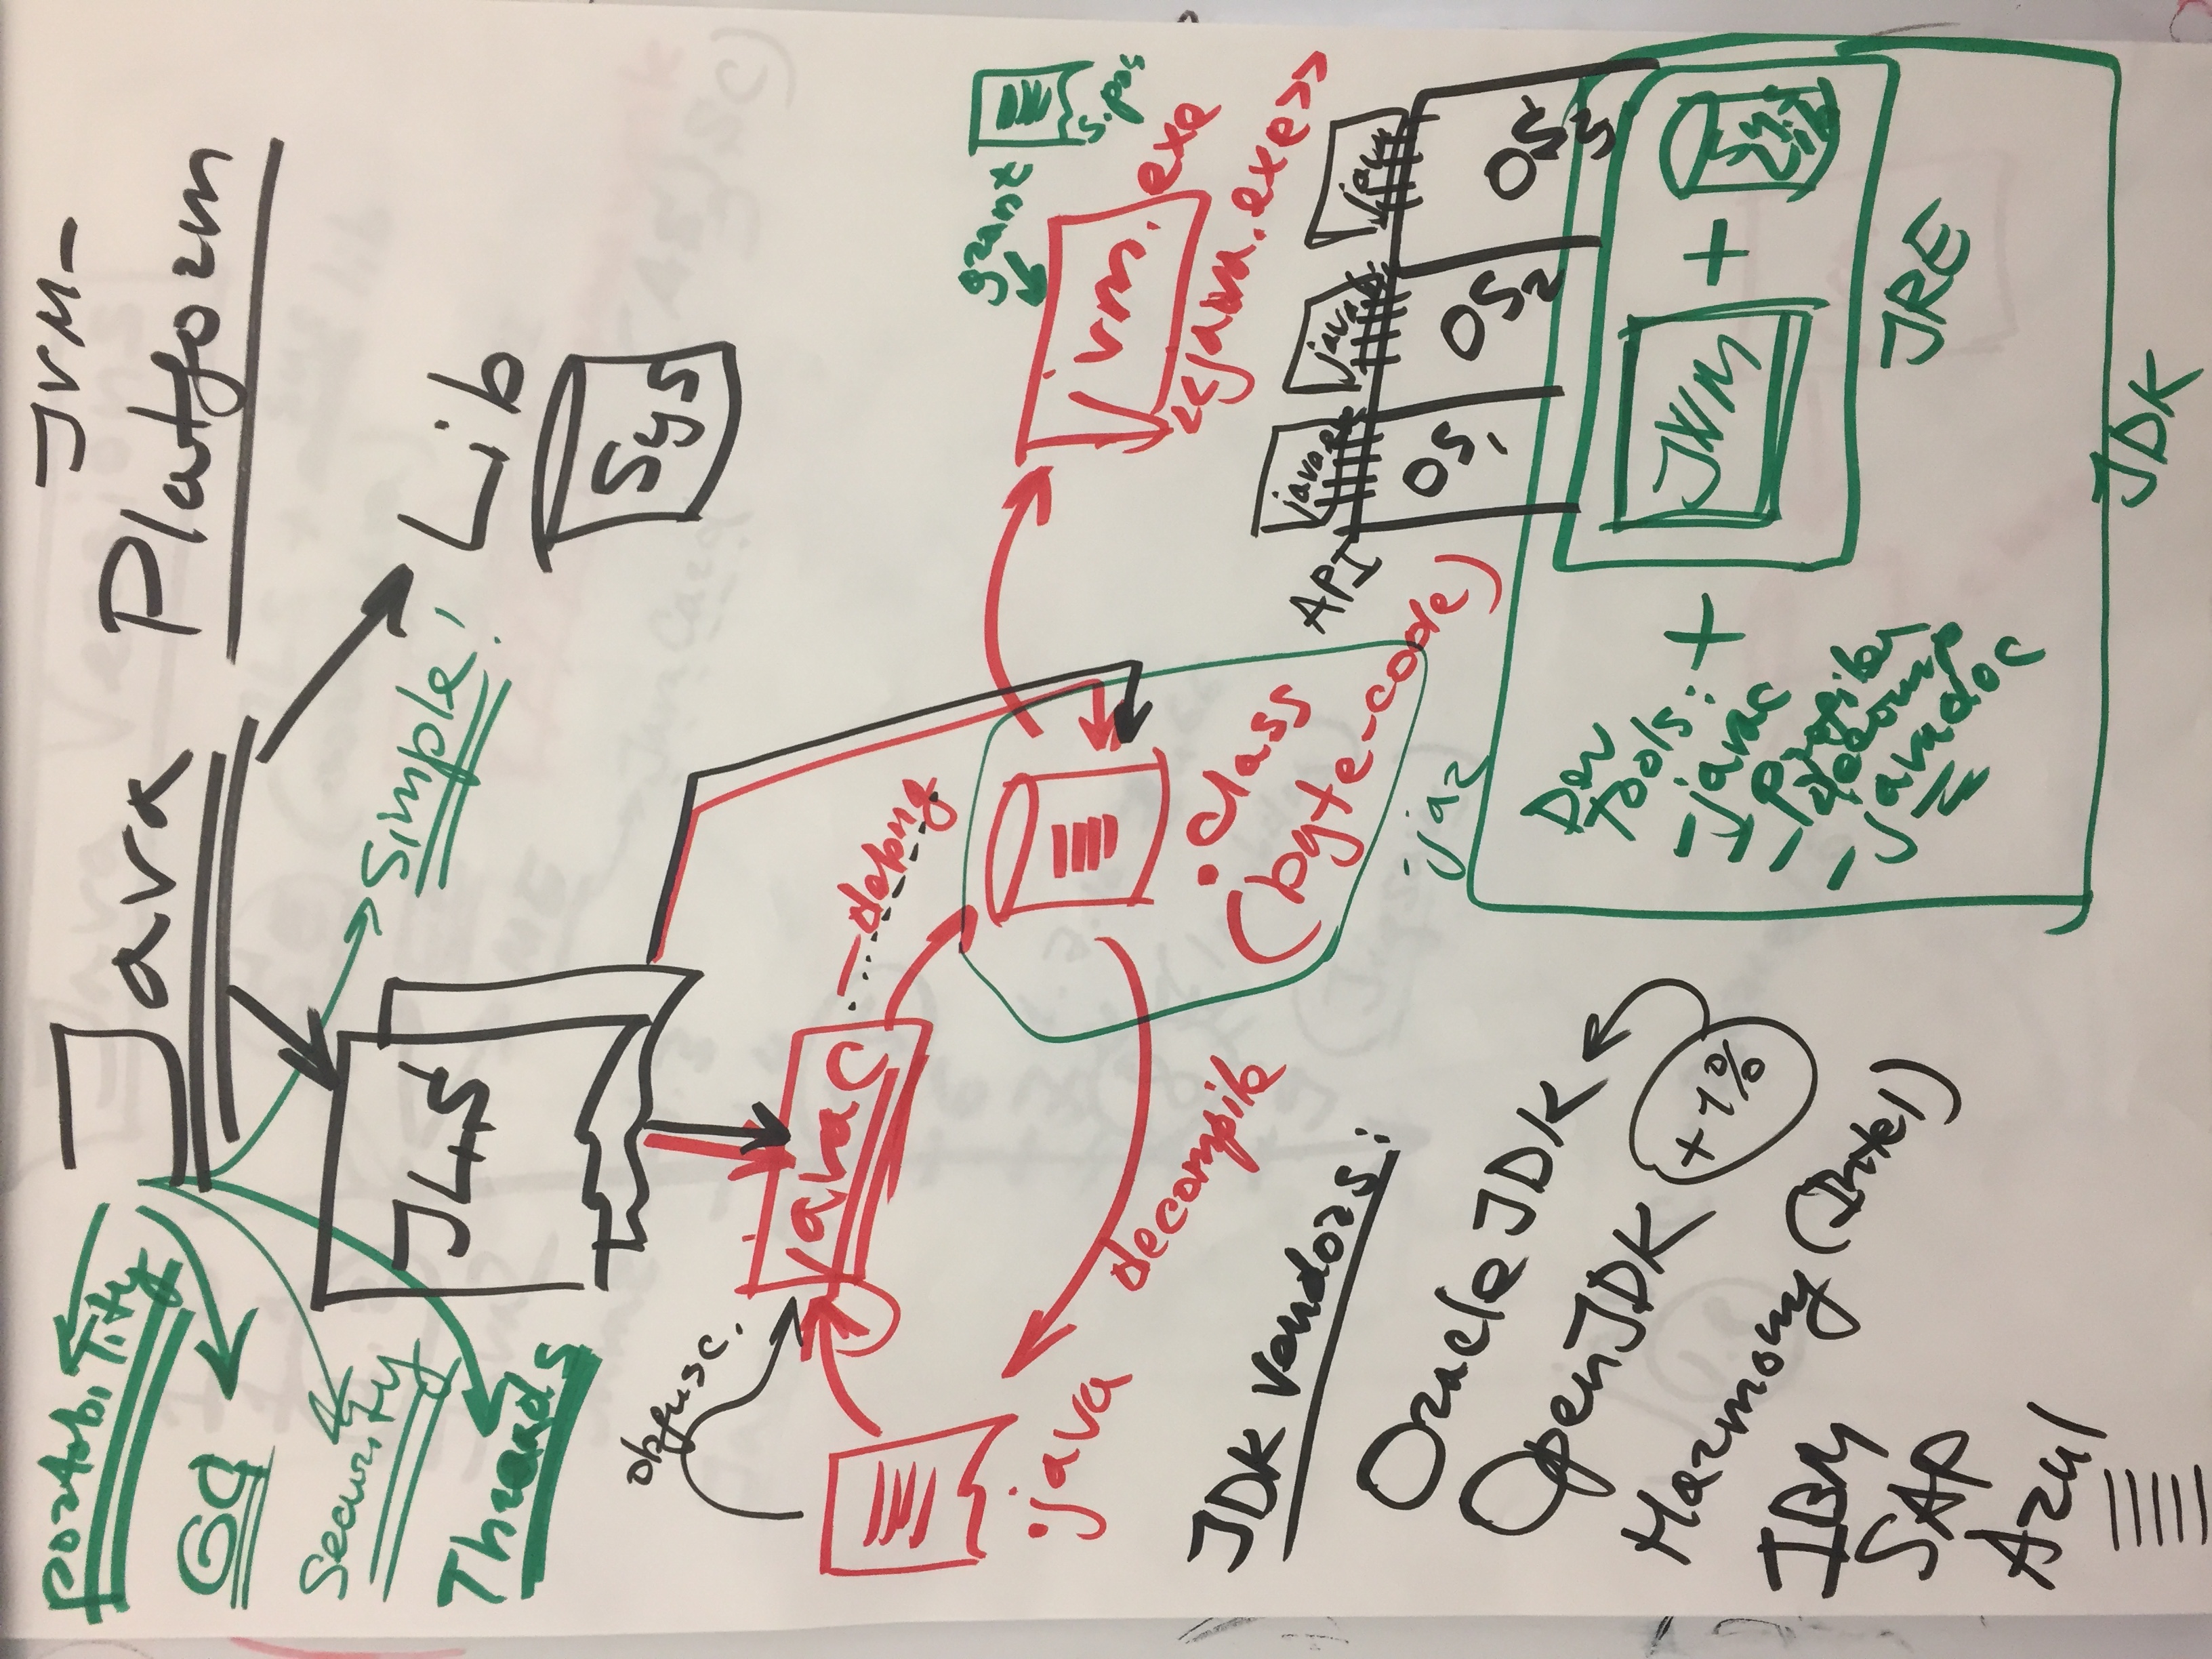 JVM-
Java Platform
portability
GC
Security
Threads
Simple!
JLS
Lib
Sys
obfusc.
javac
-debug
.java
decompile
.class
(byte-code)
.jar
grant
jvm.exe
<<java.exe>>
API
java
java
java
OS1
OS2
OS3
JDK vendors:
Oracle JDK
OpenJDK
+1%
Harmony (Intel)
IBM
SAP
Azul
Dev
Tools:
- javac
- Profiler
- decomp
- javadoc
+
JVM
+
Lib
JRE
JDK